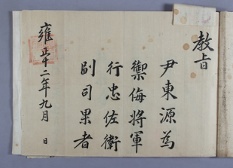 教旨
尹東源為
禦侮將軍
行忠佐衛
副司果者
雍正十二年九月　日